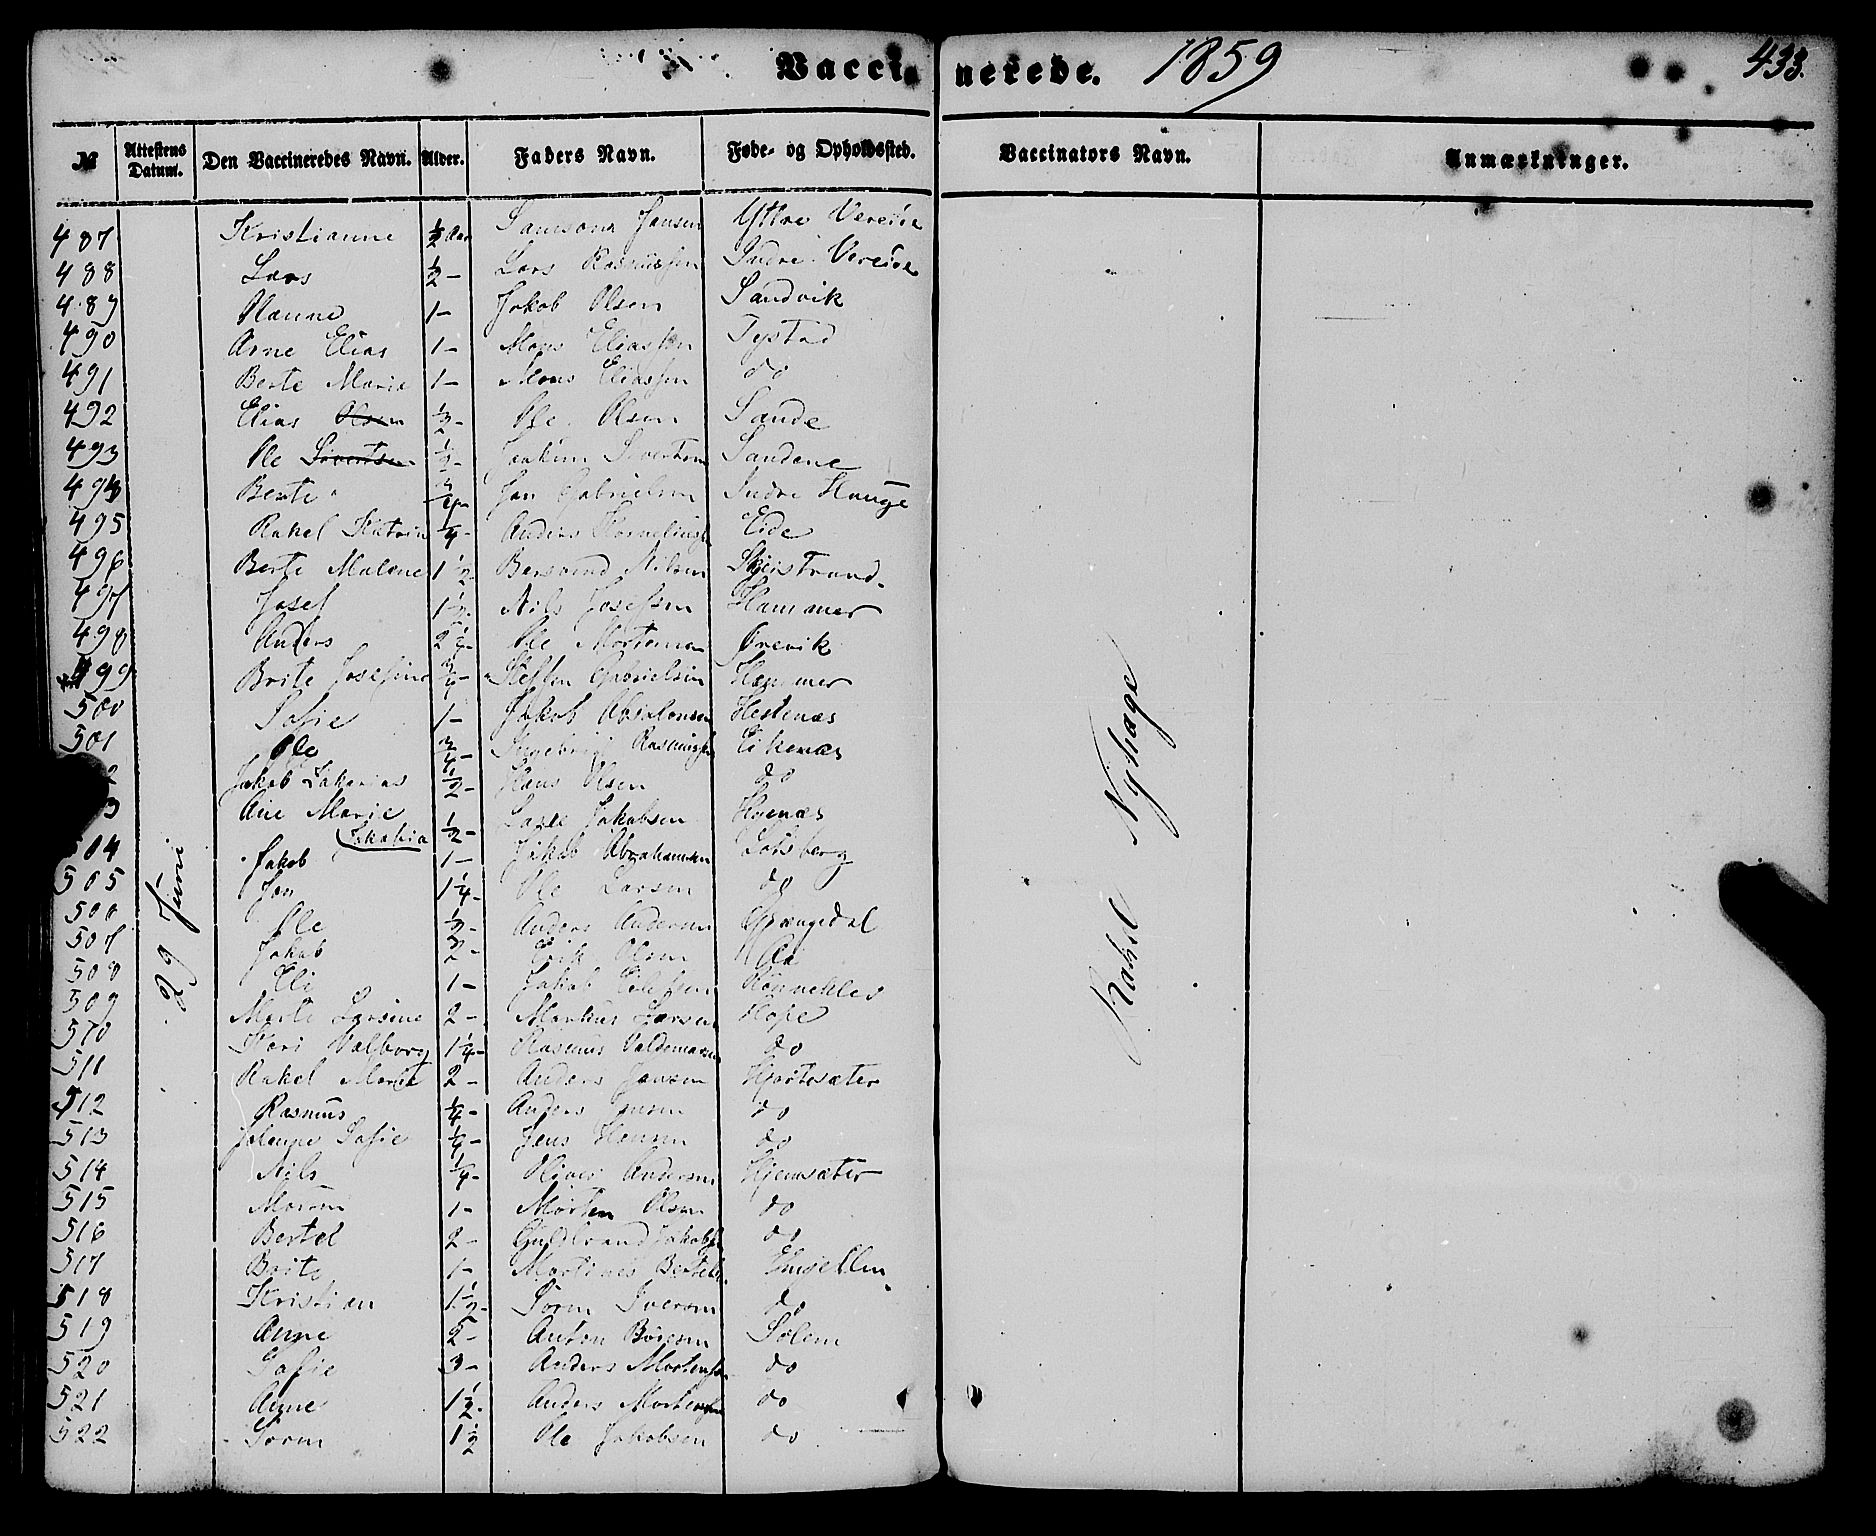 Vaccinerede. 1859 433.
№ Attestens Datum. Den Vaccineredes Navn. Alder. Faders Navn. Føde- og Opholdssted. Vaccinators Navn. Anmærkninger.
487 Kristianne ½ Aar Samson Jensen Yttre Vereide
488 Lars ½ - Lars Rasmussen Indre Vereide
489 Hanne 1 - Jakob Olsen Sandvik
490 Arne Elias 1 - Mons Eliassen Tystad
491 Berte Marie 1 - Mons Eliassen do
492 Elias Olsen ½ - Ole Olsen Sande
493 Ole Sivertsen ½ - Joakim Sivertsen Sandene
494 Berte Jon Gabrielsen Indre Hauge
495 Rakel Katrin ¼ - Anders Eide
496 Berte Malene 1 ½ - Bersvend Nilsen
497 Josef 1 ½ - Nils Josefsen Hammer
498 Anders 2 ½ - Ole Mortensen Örevik
499 Brite Josefine ¾ - Steffen Gabrielsen Hammer
500 Sofie 1 - Jakob Absalonsen Hestenæs
501 Ole ¾ - Ingebrigt Rasmussen Eikenæs
2 Jakob Zakarias ½ - Hans Olsen do
3 Ane Marie
Jakobia ½ - Lasse Jakobsen Hoenæs
504 Jakob 1 - Jakob Abrahamsen Lotsberg
505 Jon 1 ¼ - Ole Larsen do
506 Ole ½ - Anders Andersen
507 Jakob 2 - Erik Olsen Aa
508 Eli 1 - Jakob Eilefsen
509 Marte Larsine 2 - Markus Larsen Hope
510 Kari Valborg 1 ¼ - Rasmus Valdemarsen do
511 Rakel Marie 2 - Anders Jensen Hjortesæter
512 Rasmus ¼ - Anders Jensen do
513 Sofie ¼ - Jens Hansen do
514 Nils ¼ - Oliver Andersen Hjemsæter
515 Maren 1 - Morten Olsen do
516 Bertel 2 - Guldbrand Jakobsen do
517 Brite 1 - Martines Bertels.
518 Kristian 1 ½ - Gorm Iversen do
519 Anne 2 - Anton Böresen Solem
520 Sofie 3 - Anders Mortensen do
521 Anne 1 ½ - Anders Mortensen do
522 Gorm 1 ½ Ole Jakobsen do
29 Juni
Rakel Nyhage